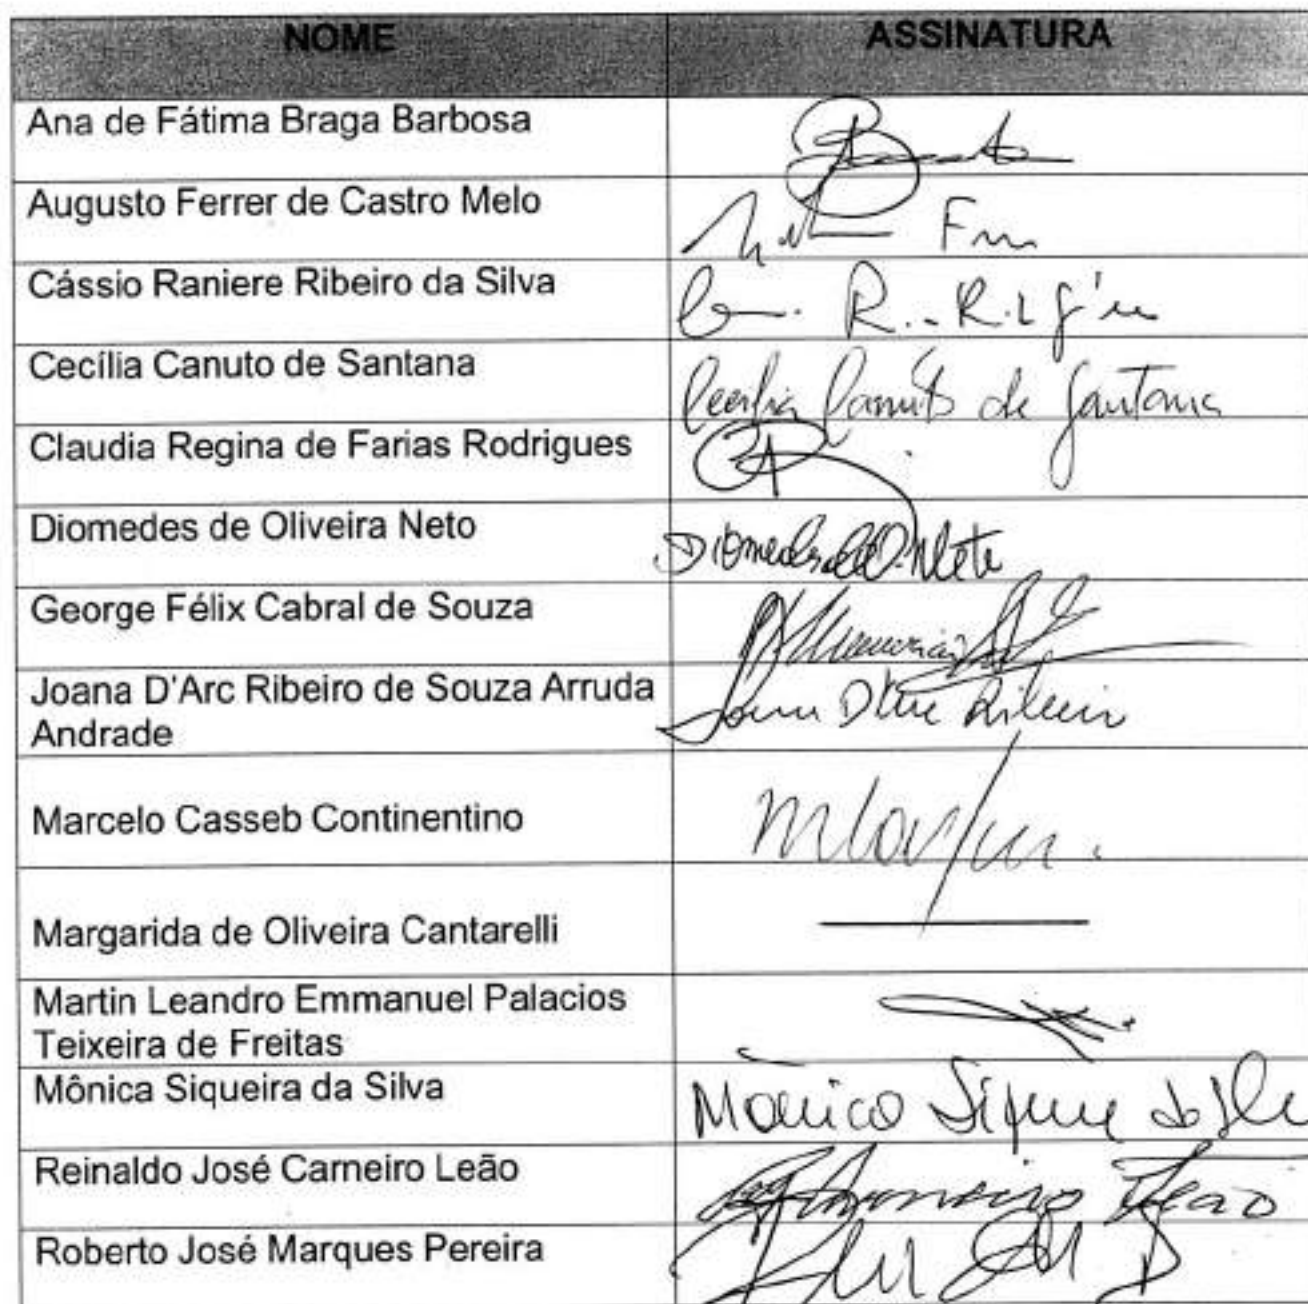 NOME ASSINATURA
Ana de Fátima Braga Barbosa
Augusto Ferrer de Castro Melo
Cássio Raniere Ribeiro da Silva
Cecília Canuto de Santana Cecília Canuto de Santana
Claudia Regina de Farias Rodrigues
Diomedes de Oliveira Neto Diomedes de O. Neto
George Félix Cabral de Souza
Joana D'Arc Ribeiro de Souza Arruda
Andrade Joana D'Arc Ribeiro
Marcelo Casseb Continentino
Margarida de Oliveira Cantarelli
Martin Leandro Emmanuel Palacios
Teixeira de Freitas
Mônica Siqueira da Silva Mônica Siqueira da Silva
Reinaldo José Carneiro Leão Carneiro Leão
Roberto José Marques Pereira